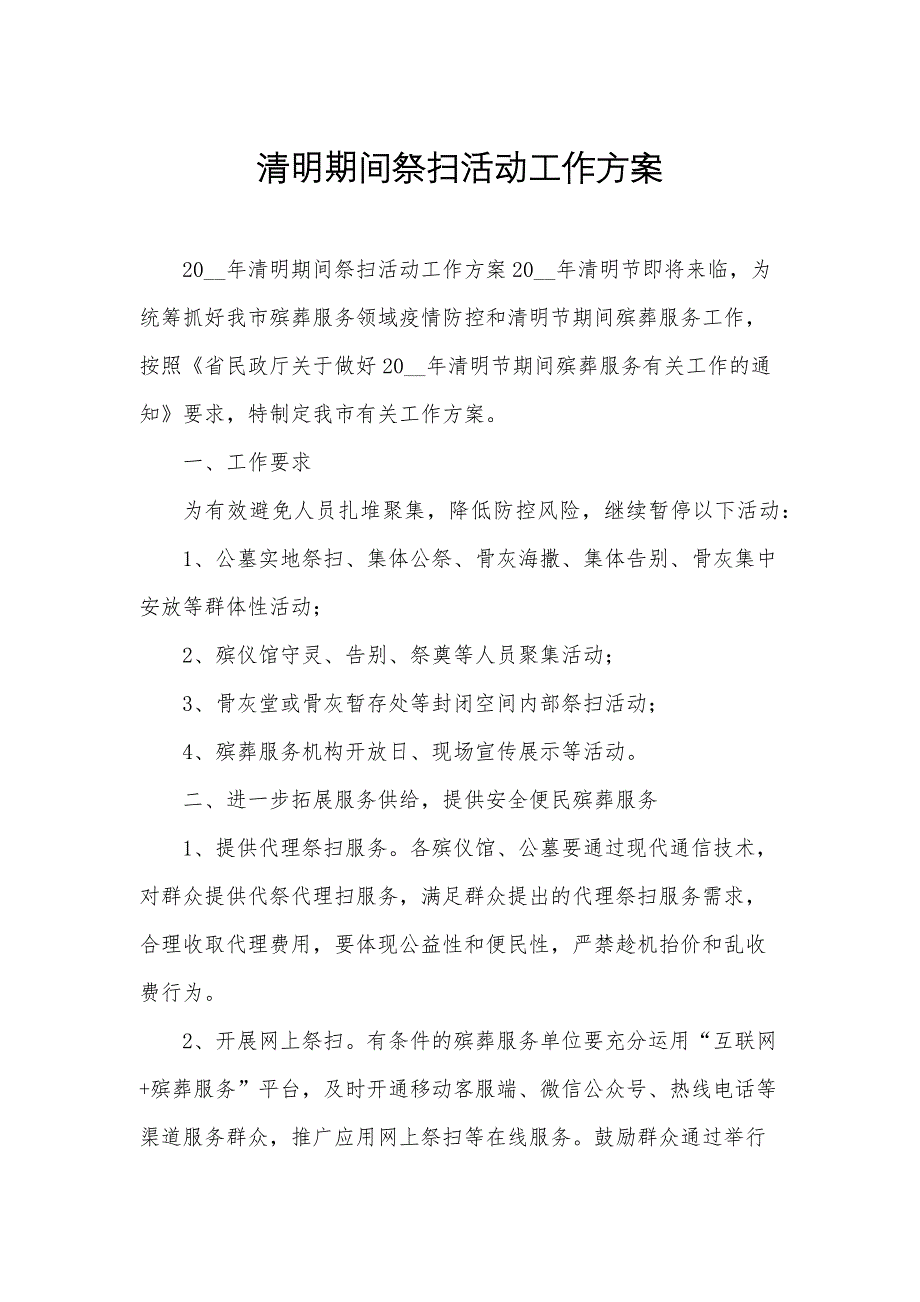 清明期间祭扫活动工作方案
20__年清明期间祭扫活动工作方案20__年清明节即将来临，为
统筹抓好我市殡葬服务领域疫情防控和清明节期间殡葬服务工作，
按照《省民政厅关于做好20__年清明节期间殡葬服务有关工作的通
知》要求，特制定我市有关工作方案。
一、工作要求
为有效避免人员扎堆聚集，降低防控风险，继续暂停以下活动：
1、公墓实地祭扫、集体公祭、骨灰海撒、集体告别、骨灰集中
安放等群体性活动；
2、殡仪馆守灵、告别、祭奠等人员聚集活动；
3、骨灰堂或骨灰暂存处等封闭空间内部祭扫活动；
4、殡葬服务机构开放日、现场宣传展示等活动。
二、进一步拓展服务供给，提供安全便民殡葬服务
1、提供代理祭扫服务。各殡仪馆、公墓要通过现代通信技术，
对群众提供代祭代理扫服务，满足群众提出的代理祭扫服务需求，
合理收取代理费用，要体现公益性和便民性，严禁趁机抬价和乱收
费行为。
2、开展网上祭扫。有条件的殡葬服务单位要充分运用“互联网
+殡葬服务”平台，及时开通移动客服端、微信公众号、热线电话等
渠道服务群众，推广应用网上祭扫等在线服务。鼓励群众通过举行